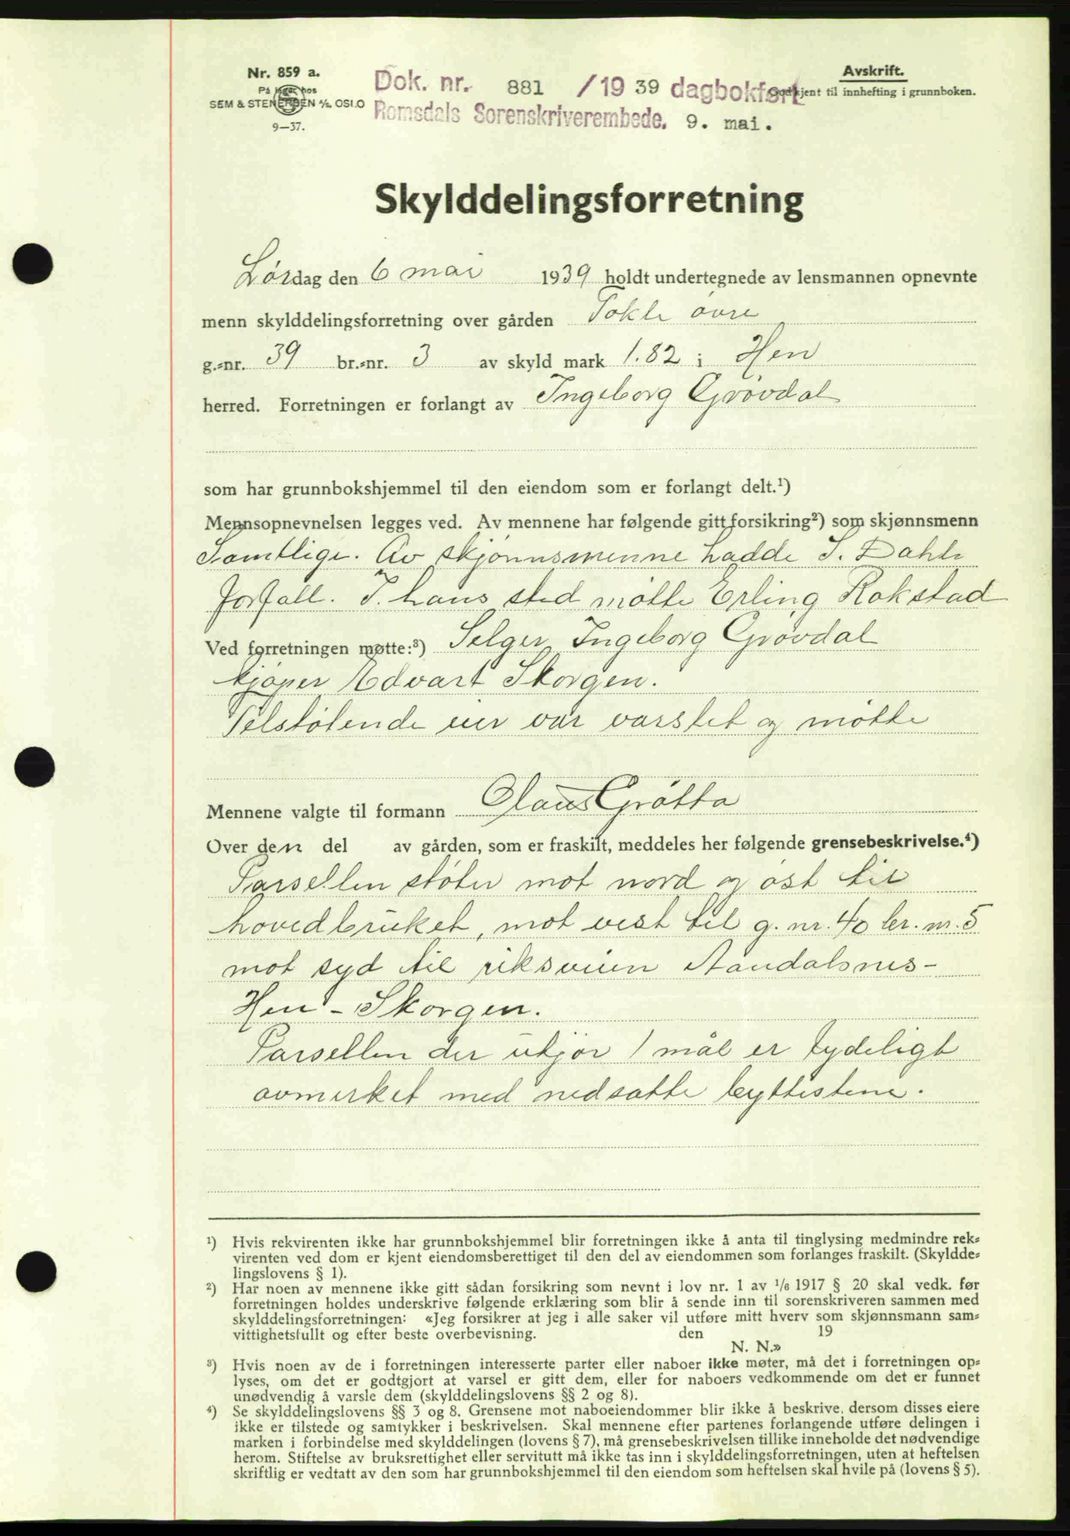 Nr. 859 a.
På lager hos
SEM & STENERSEN A/S, OSLO
9—37.
Dok. nr. 881 /19 39 dagbokført
Romsdals Sorenskriverembede. 9. mai.
Avskrift.
Godkjent til innhefting i grunnboken.
Skylddelingsforretning
Lørdag den 6 mai 1939 holdt undertegnede av lensmannen opnevnte
menn skylddelingsforretning over gården Tokle øvre
g.-nr. 39 br.-nr. 3 av skyld mark 1.82 i Hen
herred. Forretningen er forlangt av Ingeborg Grøvdal
som har grunnbokshjemmel til den eiendom som er forlangt delt.¹)
Mennsopnevnelsen legges ved. Av mennene har følgende gitt forsikring²) som skjønnsmenn
Samtlige. Av skjønnsmenne hadde S. Dahle
forfall. I hans sted møtte Erling Rokstad
Ved forretningen møtte:³) Selger Ingeborg Grøvdal
kjøper Edvart Skorgen.
Tilstøtende eier var varslet og møtte
Mennene valgte til formann Olaus Grøtta
Over den del av gården, som er fraskilt, meddeles her følgende grensebeskrivelse.⁴)
Parsellen støter mot nord og øst til
hovedbruket, mot vest til g. nr. 40 br. nr. 5
mot syd til riksveien Aandalsnes-
Hen - Skorgen.
Parsellen der utjør 1 mål er tydeligt
avmerket med nedsatte byttestene.
¹) Hvis rekvirenten ikke har grunnbokshjemmel blir forretningen ikke å anta til tinglysing medmindre rek-
virenten ved dom er kjent eiendomsberettiget til den del av eiendommen som forlanges fraskilt. (Skyldde-
lingslovens § 1).
²) Har noen av mennene ikke gitt sådan forsikring som nevnt i lov nr. 1 av 1/6 1917 § 20 skal vedk. før
forretningen holdes underskrive følgende erklæring som blir å sende inn til sorenskriveren sammen med
skylddelingsforretningen: «Jeg forsikrer at jeg i alle saker vil utføre mitt hverv som skjønnsmann sam-
vittighetsfullt og efter beste overbevisning. den 19
N. N.»
³) Hvis noen av de i forretningen interesserte parter eller naboer ikke møter, må det i forretningen op-
lyses, om det er godtgjort at varsel er gitt dem, eller for naboers vedkommende om det er funnet
unødvendig å varsle dem (skylddelingslovens §§ 2 og 8).
⁴) Se skylddelingslovens §§ 3 og 8. Grensene mot naboeiendommer blir ikke å beskrive, dersom disses eiere
ikke er tilstede og samtykker i beskrivelsen. Skal mennene efter partenes forlangende utføre delingen i
marken i forbindelse med skylddelingen (lovens § 7), må grensebeskrivelsen tillike inneholde det nødvendige
herom. Stiftelse av bruksrettighet eller servitutt må ikke tas inn i skylddelingsforretningen, uten at heftelsen
skriftlig er vedtatt av den som har grunnbokshjemmel til den eiendom som heftelsen skal hvile på (lovens § 5).